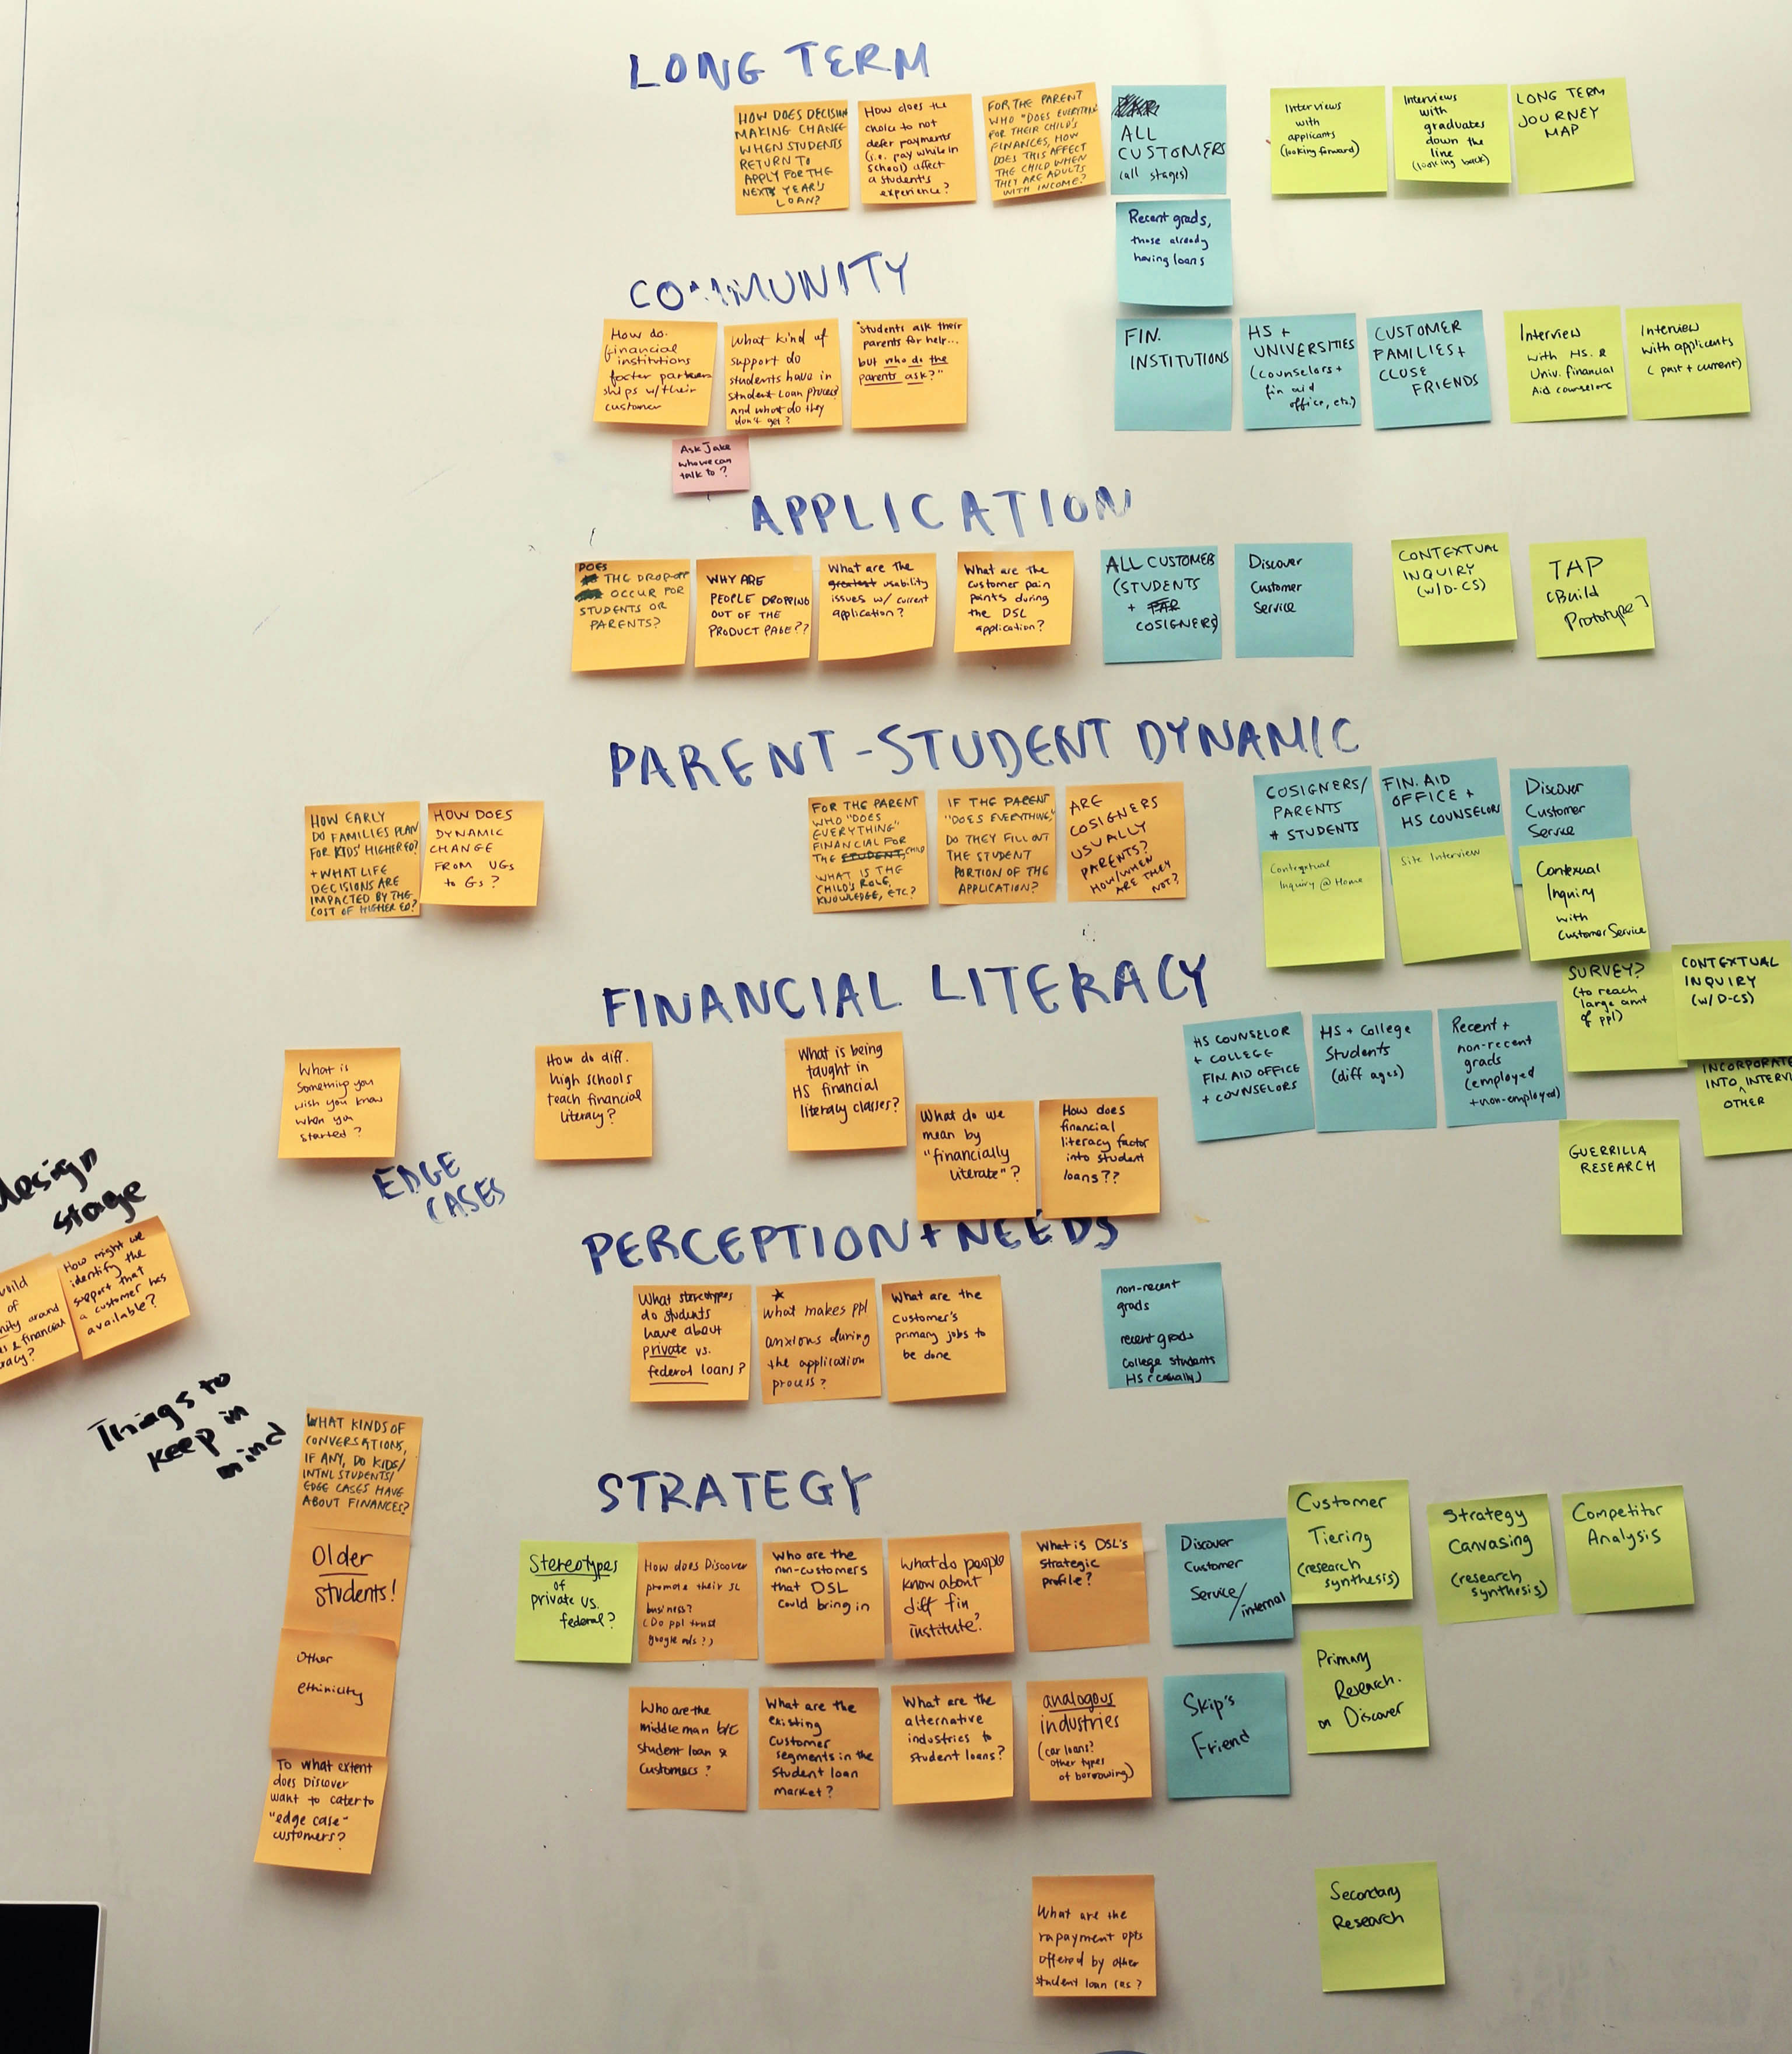 LONG TERM
HOW DOES DECISION
MAKING CHANGE
WHEN STUDENTS
RETURN TO
APPLY FOR THE
NEXT YEAR'S
LOAN?
How does the
choice to not
defer payments
(i.e. pay while in
school) affect
a student's
experience?
FOR THE PARENT
WHO "DOES EVERYTHING"
FOR THEIR CHILD'S
FINANCES, HOW
DOES THIS AFFECT
THE CHILD WHEN
THEY ARE ADULTS
WITH INCOME?
ALL
CUSTOMERS
(all stages)
Interviews
with
applicants
(looking forward)
Interviews
with
graduates
down the
line
(looking back)
LONG TERM
JOURNEY
MAP
Recent grads,
those already
having loans
COMMUNITY
How do
financial
institutions
foster partner
ships w/their
customer
What kind of
support do
students have in
student loan process
And what do they
don't get?
"Students ask their
parents for help...
but who do the
parents ask?"
FIN.
INSTITUTIONS
HS +
UNIVERSITIES
(counselors +
fin aid
office, etc.)
CUSTOMER
FAMILIES +
CLOSE
FRIENDS
Interview
with HS. &
Univ. financial
Aid counselors
Interview
with applicants
(past + current)
Ask Jake
who we can
talk to?
APPLICATION
DOES
THE DROP-OFF
OCCUR FOR
STUDENTS OR
PARENTS?
WHY ARE
PEOPLE DROPPING
OUT OF THE
PRODUCT PAGE??
What are the
greatest usability
issues w/ current
application?
What are the
customer pain
points during
the DSL
application?
ALL CUSTOMER
(STUDENTS
+ PAR
COSIGNERS)
Discover
Customer
Service
CONTEXTUAL
INQUIRY
(w/D-CS)
TAP
(Build
Prototype)
PARENT-STUDENT DYNAMIC
HOW EARLY
DO FAMILIES PLAN
FOR KIDS' HIGHER ED?
+ WHAT LIFE
DECISIONS ARE
IMPACTED BY THE
COST OF HIGHER ED?
HOW DOES
DYNAMIC
CHANGE
FROM UGs
to Gs?
FOR THE PARENT
WHO "DOES
EVERYTHING"
FINANCIAL FOR
THE STUDENT, CHILD
WHAT IS THE
CHILD'S ROLE,
KNOWLEDGE, ETC?
IF THE PARENT
"DOES EVERYTHING,"
DO THEY FILL OUT
THE STUDENT
PORTION OF THE
APPLICATION?
ARE
COSIGNERS
USUALLY
PARENTS?
HOW/WHEN
ARE THEY
NOT?
COSIGNERS/
PARENTS
# STUDENTS
FIN. AID
OFFICE +
HS COUNSELOR
Discover
Customer
Service
Contextual
Inquiry @ Home
Site Interview
Contexual
Inquiry
with
Customer Service
FINANCIAL LITERACY
What is
something you
wish you know
when you
started?
How do diff.
high schools
teach financial
literacy?
What is being
taught in
HS financial
literacy classes?
What do we
mean by
"financially
literate"?
How does
financial
literacy factor
into student
loans??
HS COUNSELOR
+ COLLEGE
FIN. AID OFFICE
+ COUNSELORS
HS + College
Students
(diff ages)
Recent +
non-recent
grads
(employed
+non-employed)
SURVEY?
(to reach
large amt
of ppl)
CONTEXTUAL
INQUIRY
(w/D-CS)
INCORPORATE
INTO INTERVI
OTHER
GUERRILLA
RESEARCH
EDGE
CASES
design
stage
How might we
identify the
support that
a customer has
available?
PERCEPTION+NEEDS
What stereotypes
do students
have about
private vs.
federal loans?
What makes ppl
anxious during
the application
process?
What are the
customer's
primary jobs to
be done
non-recent
grads
recent grads
college students
HS (casually)
Things to
keep in
mind
WHAT KINDS OF
CONVERSATIONS,
IF ANY, DO KIDS/
INTNL STUDENTS/
EDGE CASES HAVE
ABOUT FINANCES?
Older
students!
Other
ethinicity
To what extent
does Discover
want to cater to
"edge case"
customers?
STRATEGY
Stereotypes
of
private vs.
federal?
How does Discover
promote their SL
business?
(Do ppl trust
google ads?)
Who are the
non-customers
that DSL
could bring in
what do people
know about
diff fin
institute?
What is DSL's
strategic
profile?
Discover
Customer
Service/
internal
Customer
Tiering
(research
synthesis)
Strategy
Canvasing
(research
synthesis)
Competitor
Analysis
Who are the
middle man b/c
student loan &
customers?
What are the
existing
customer
segments in the
student loan
market?
What are the
alternative
industries to
student loans?
analogous
industries
(car loans?
other types
of borrowing)
Skip's
Friend
Primary
Research.
on Discover
What are the
rapayment opts
offered by other
student loan cos?
Secondary
Research